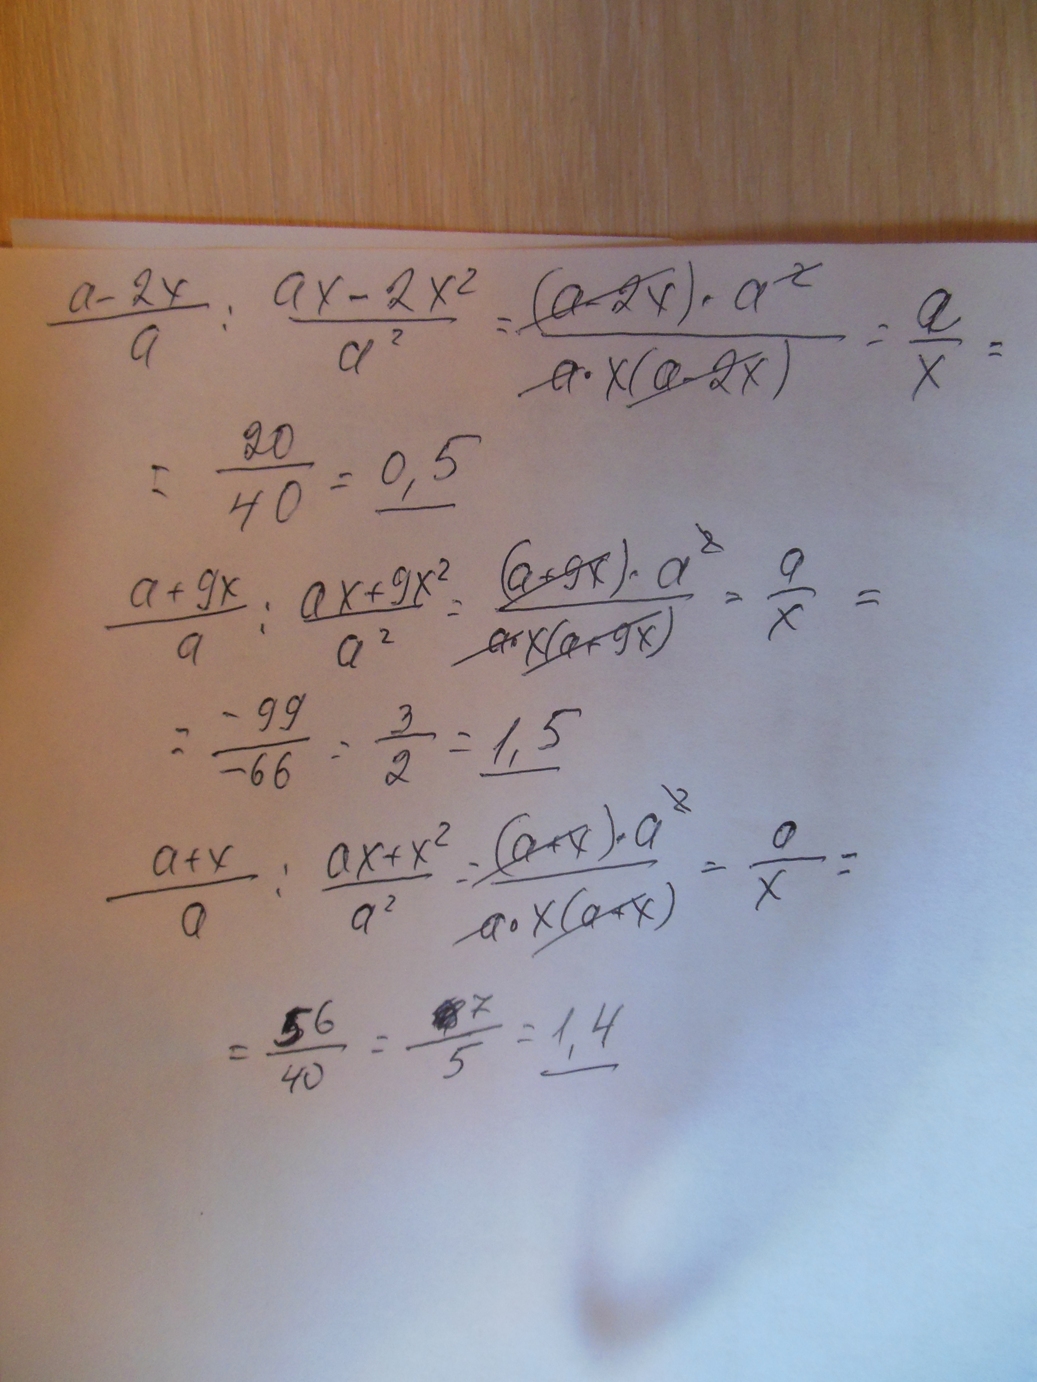 (a-2x)/a : (ax-2x²)/a² = ((a-2x)·a²)/(a·x(a-2x)) = a/x =
= 20/40 = 0,5
(a+9x)/a : (ax+9x²)/a² = ((a+9x)·a²)/(a·x(a+9x)) = a/x =
= -99/-66 = 3/2 = 1,5
(a+x)/a : (ax+x²)/a² = ((a+x)·a²)/(a·x(a+x)) = a/x =
= 56/40 = 7/5 = 1,4